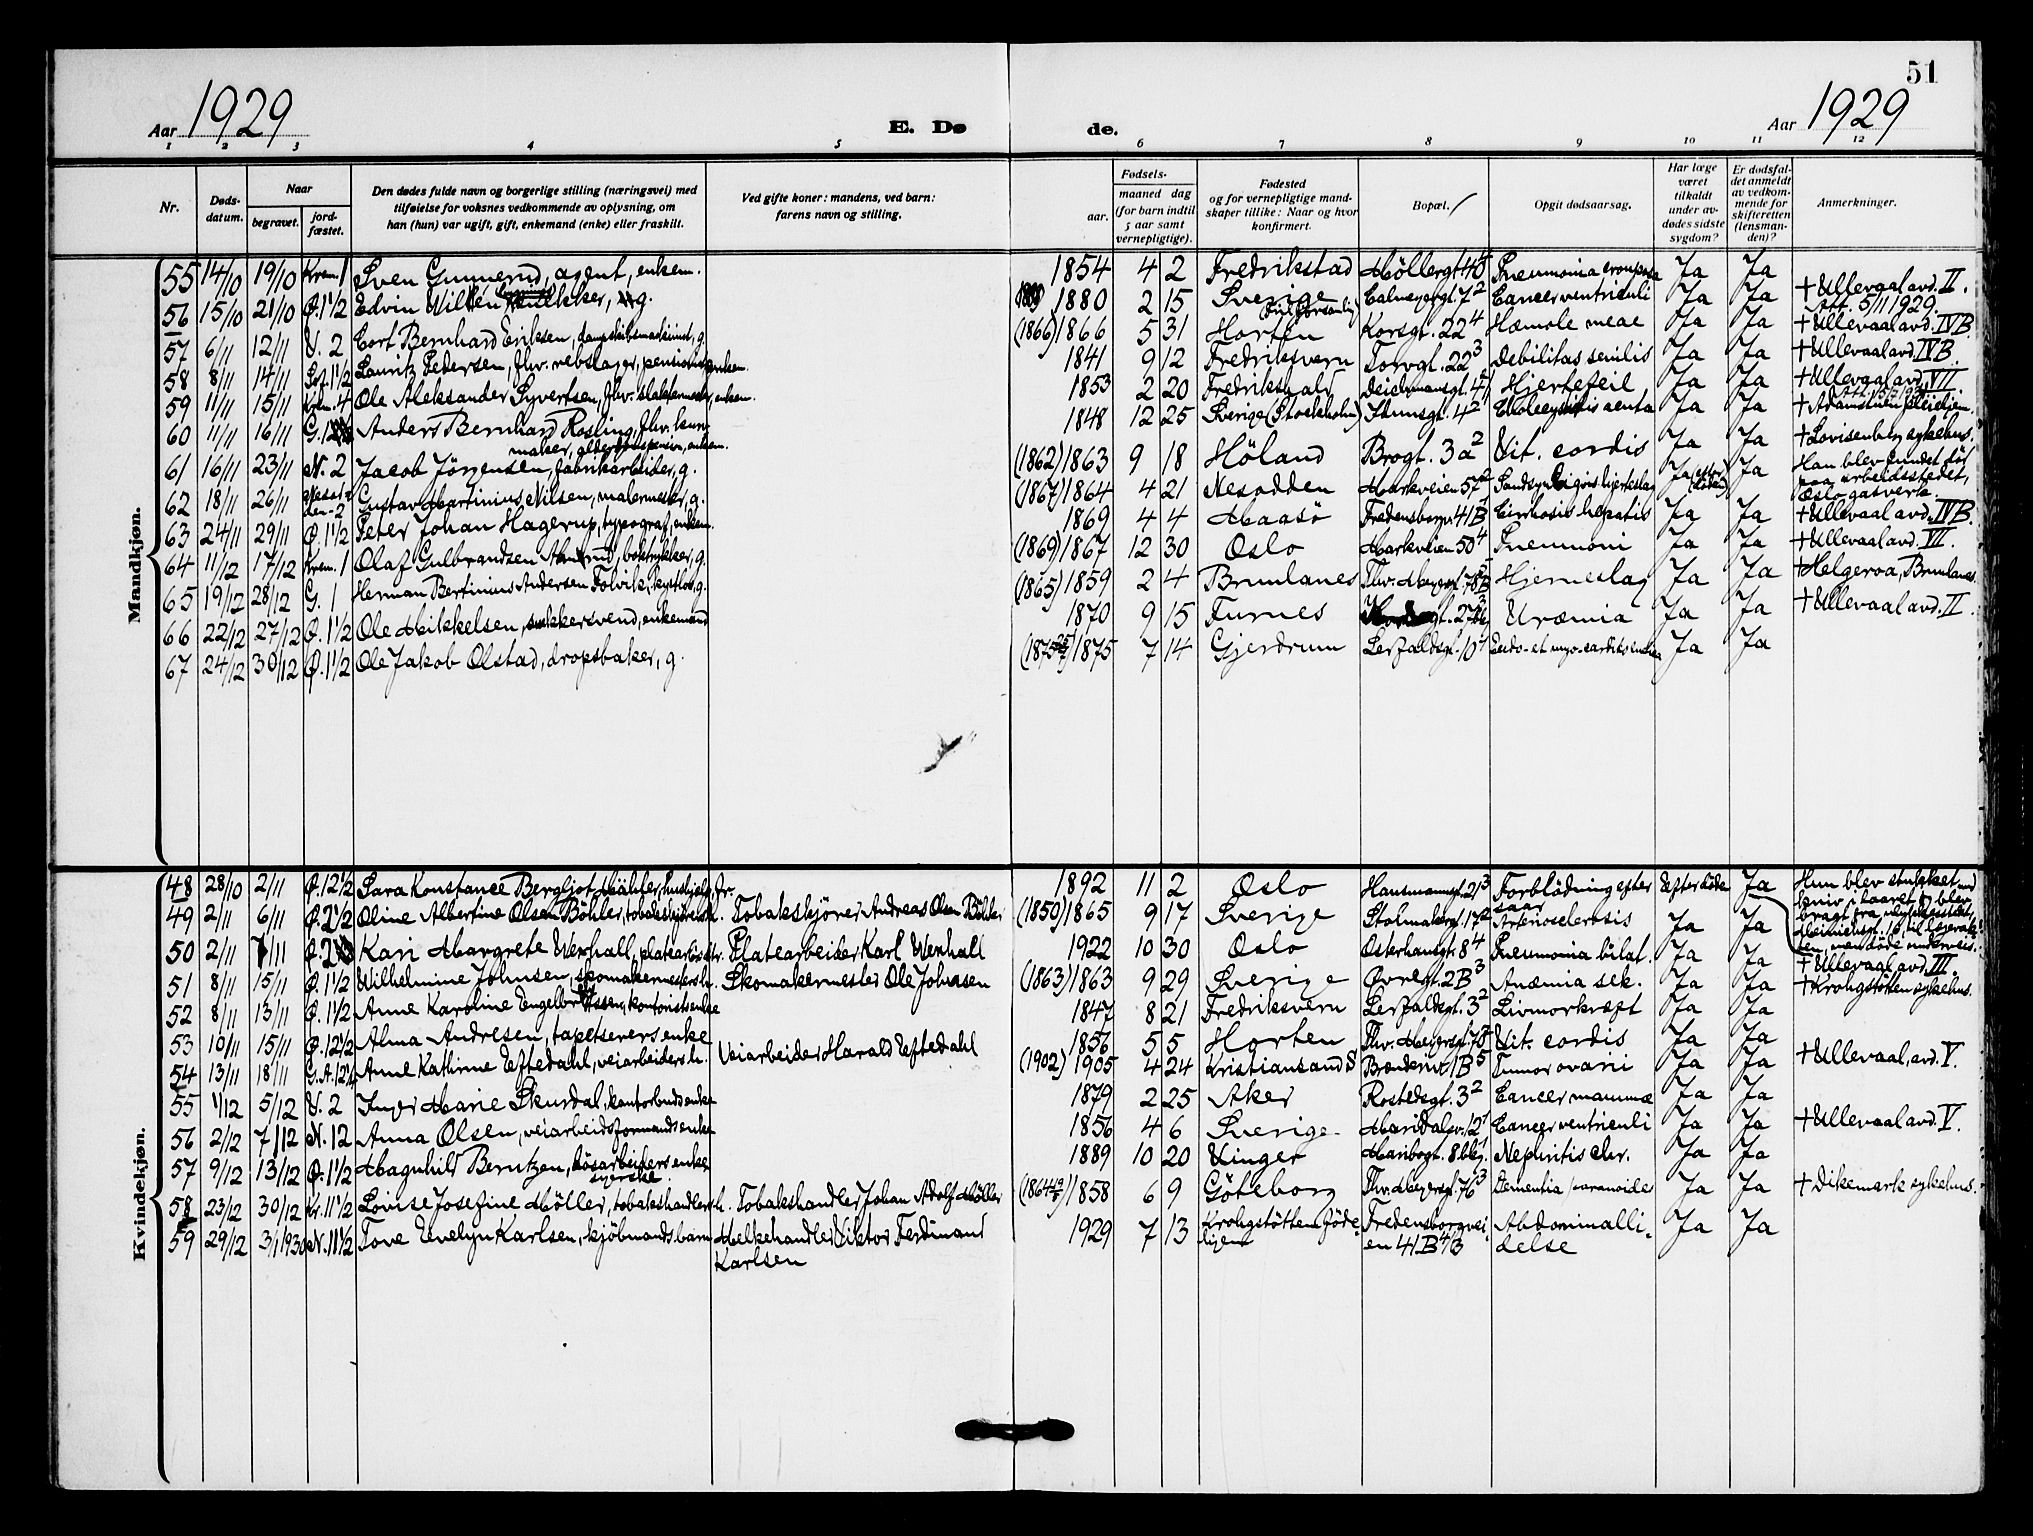 51
Aar 1929 E. Dø de. Aar 1929
1 2 3 4 5 6 7 8 9 10 11 12
Nr. Døds-datum. Naar begravet. jord-fæstet. Den dødes fulde navn og borgerlige stilling (næringsvei) med tilføielse for voksnes vedkommende av oplysning, om han (hun) var ugift, gift, enkemand (enke) eller fraskilt. Ved gifte koner: mandens, ved barn: farens navn og stilling. Fødsels- aar. maaned dag (for barn indtil 5 aar samt vernepligtige). Fødested og for vernepligtige mandskaper tillike: Naar og hvor konfirmert. Bopæl. Opgit dødsaarsag. Har læge været tilkaldt under avdødes sidste sygdom? Er dødsfaldet anmeldt av vedkommende for skifteretten (lensmanden)? Anmerkninger.
Mandkjøn.
55 14/10 19/10 Krem. 1 Sven Gunnerud, agent, enkem. 1854 4 2 Fredrikstad Möllergt. Pneumonia crouposa Ja Ja
56 15/10 21/10 Ø. 1 1/2 Edvin g. 1880 2 15 Sverige Calmeyergt. 7² Cancer ventriculi Ja Ja + Ullevaal avd. II. Att. 5/11 1929.
57 6/11 12/11 V. 2 Cort Bernhard Eriksen, g. (1866) 1866 5 31 Horten Korsgt. 22⁴ Ja Ja + Ullevaal avd. IVB
58 8/11 14/11 1 1/2 Lauritz Pedersen, fhv. rebslager, pensionist, enkem. 1841 9 12 Fredriksvern Torvgt. 22³ Debilitas senilis Ja Ja + Ullevaal avd. IVB.
59 11/11 15/11 Krem. 4 Ole Aleksander Syvertsen, fhv. slaktermester, enkem. 1853 2 20 Fredrikshald Deichmansgt. Hjertefeil Ja Ja + Ullevaal avd. VII.
60 11/11 16/11 G. Anders Bernhard Rosling, fhv. maler, enkem. 1848 12 25 Sverige (Stockholm) Stensgt. 4² acuta Ja Ja + Adamstuen pleiehjem.
61 16/11 23/11 N. 2 Jacob Jörgensen, fabrikarbeider, g. (1862) 1863 9 18 Höland Brogt. 3a² Vit. cordis Ja Ja + Lovisenberg sykehus.
62 18/11 26/11 2 Gustav Martinius Nilsen, malermester, g. (1867) 1864 4 21 Nesodden Markveien 57² hjerteslag Ja (efter döden) Ja Han blev fundet död paa arbeidsstedet, Oslo gasverk.
63 24/11 29/11 Ø. 1 1/2 Peter Johan Hagerup, typograf, enkem. 1869 4 4 Maasö Fredensborgv. 41B Cirrhosis hepatis Ja Ja + Ullevaal avd. IVB.
64 11/12 17/12 Krem. 1 Olaf Gulbrandsen boktrykker, g. (1869) 1867 12 30 Oslo Markveien 50⁴ Pneumoni Ja Ja + Ullevaal avd. VII.
65 19/12 28/12 G. 1 Herman Bertinius Andersen Tolvik, g. (1865) 1859 2 4 Brunlanes Thv. Meyersgt. Hjerneslag Ja Ja + Helgeroa, Brunlanes
66 22/12 27/12 Ø. 1 1/2 Ole Mikkelsen, snekkersvend, enkemand 1870 9 15 Furnes Uræmia Ja Ja + Ullevaal avd. II.
67 24/12 30/12 Ø. 1 1/2 Ole Jakob Olstad, dropsbaker, g. 1875 7 14 Gjerdrum Ja Ja
Kvindekjøn.
48 28/10 2/11 Ø. 12 1/2 Sara Konstance Bergljot hushjelp, fr. 1892 11 2 Oslo Hausmannsgt. 21³ Forblödning efter saar Efter döden Ja Hun blev stukket med kniv i laaret og blev bragt fra ulykkesstedet,
49 2/11 6/11 Ø. 2 1/2 Oline Albertine Olsen Böhler, h. Tobakskjörer Andreas Olsen Böhler (1850) 1865 9 17 Sverige Stolmakergt. 17² Arteriosclerosis Ja Ja men döde underveis.
50 2/11 7/11 Ø. 2 Kari Margrete Wexhall, Platearbeider Karl Wexhall 1922 10 30 Oslo Osterhausgt. 8⁴ Pneumonia bilat. Ja Ja + Ullevaal avd. III.
51 8/11 15/11 Ø. 1 1/2 Wilhelmine Johnsen, skomakermesters h. Skomakermester Ole Johnsen (1863) 1863 9 29 Sverige Øvregt. 2B³ Anæmia sek. Ja Ja + Krohgstötten sykehus.
52 8/11 13/11 Ø. 1 1/2 Anne Karoline Engelbrektsen, kontoristsenke 1847 8 21 Fredriksvern Leryfaldsgt. 3² Livmorkræft Ja Ja
53 10/11 15/11 Ø. 12 1/2 Alma Andresen, tapetserers enke 1856 5 5 Horten Thv. Meyersgt. Vit. cordis Ja Ja
54 13/11 18/11 G.A. Anne Kathrine Eftedahl, veiarbeiders h. Veiarbeider Harald Eftedahl (1902) 1905 4 24 Kristiansand S 1B⁵ Tumor ovarii Ja Ja + Ullevaal, avd. V.
55 1/12 5/12 V. 2 Inger Marie Skurdal, kontorbuds enke 1879 2 25 Aker Rostedsgt. 3² Cancer mammæ Ja Ja
56 2/12 7/12 N. 12 Anna Olsen, veiarbeidsformands enke 1856 4 6 Sverige. Maridalsv. 12¹ Cancer ventriculi Ja Ja + Ullevaal avd. V.
57 9/12 13/12 Ø. 1 1/2 Magnhild Berntzen, lösarbeiders enke syerske. 1889 10 20 Vinger Maribogt. 8 Nephritis chr. Ja Ja
58 23/12 30/12 Kr. 11 1/2 Lovise Josefine Möller, tobakshandlers h. Tobakshandler Johan Adolf Möller 1858 6 9 Göteborg Thv. Meyersgt. 76³ Dementia paranoides Ja Ja + Dikemark sykehus.
59 29/12 3/1 1930 N. 11 1/2 Tove Evelyn Karlsen, kjöbmands barn Melkehandler Viktor Ferdinand Karlsen 1929 7 13 Krohgstöttens födehjem Fredensborgveien 41B⁴/3 Abdominallidelse Ja Ja